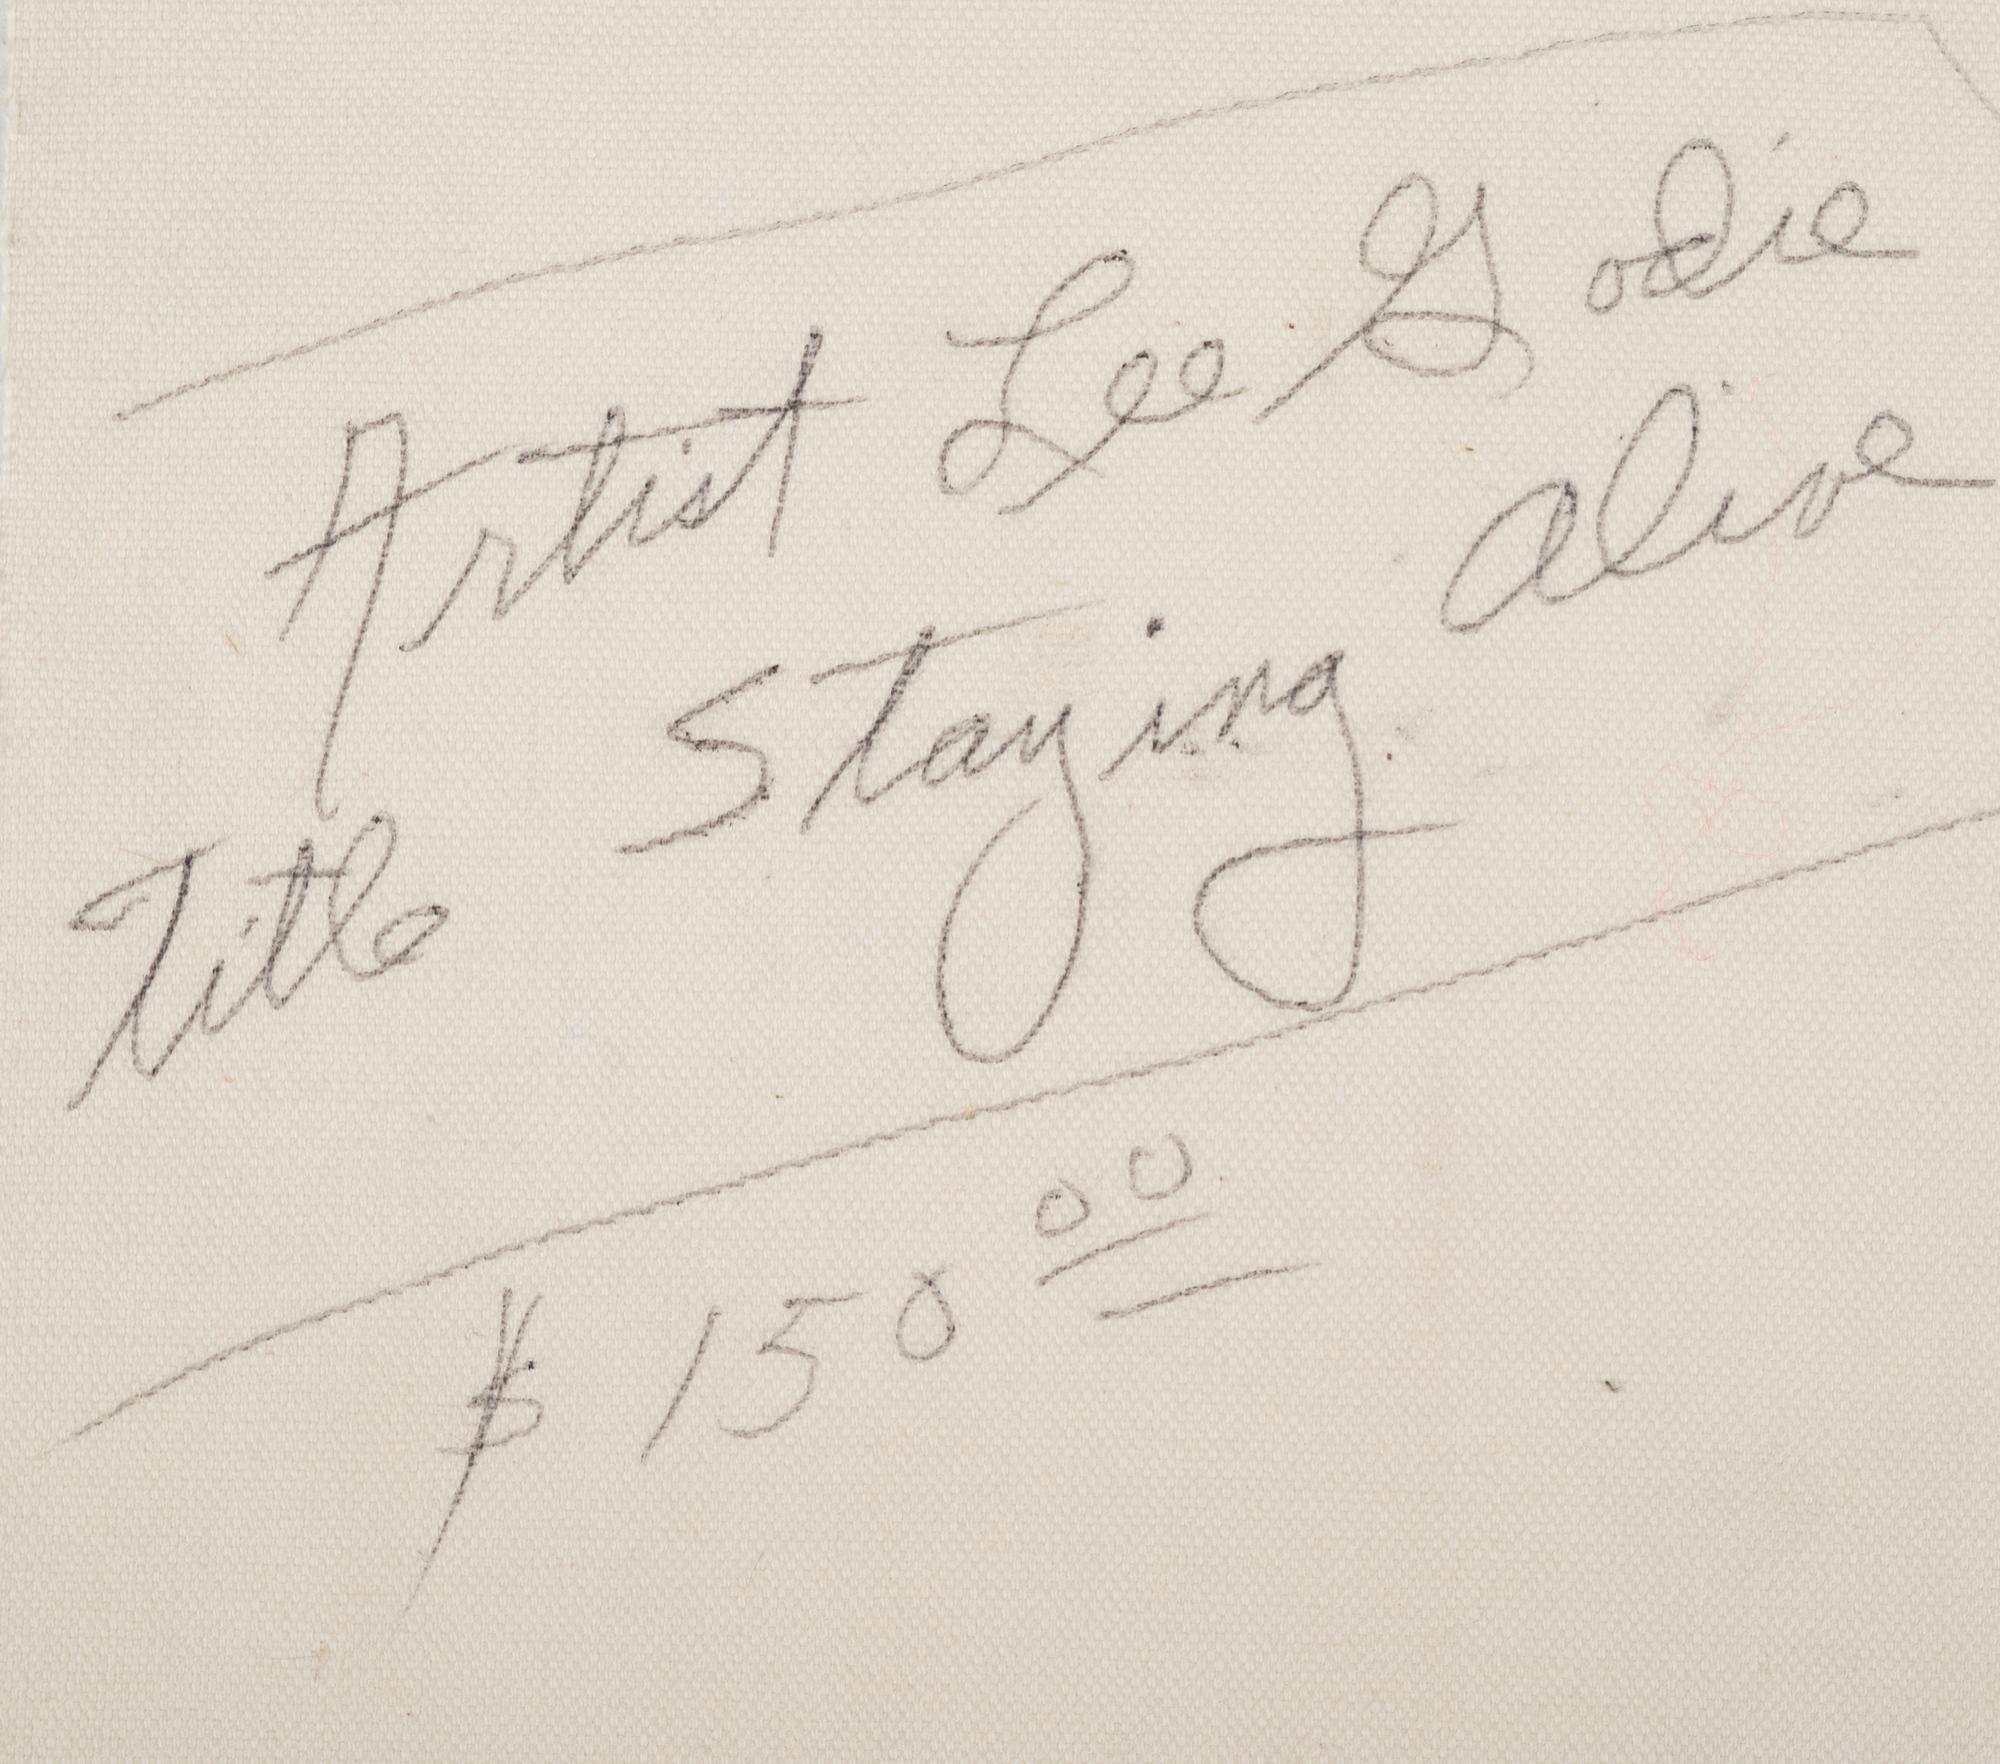 Artist Lee Godie
Title Staying alive
$ 150 00